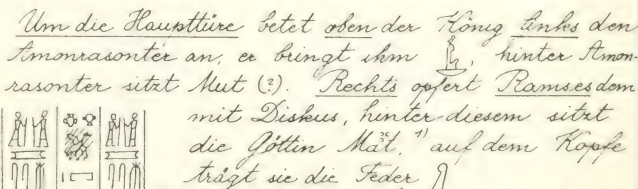 Um die Haupttüre betet oben der König links den
Amonrasontēr an, er bringt ihm , hinter Amon-
rasonter sitzt Mut (?). Rechts opfert Ramses dem
mit Diskus, hinter diesem sitzt
die Göttin Māt, 1) auf dem Kopfe
trägt sie die Feder